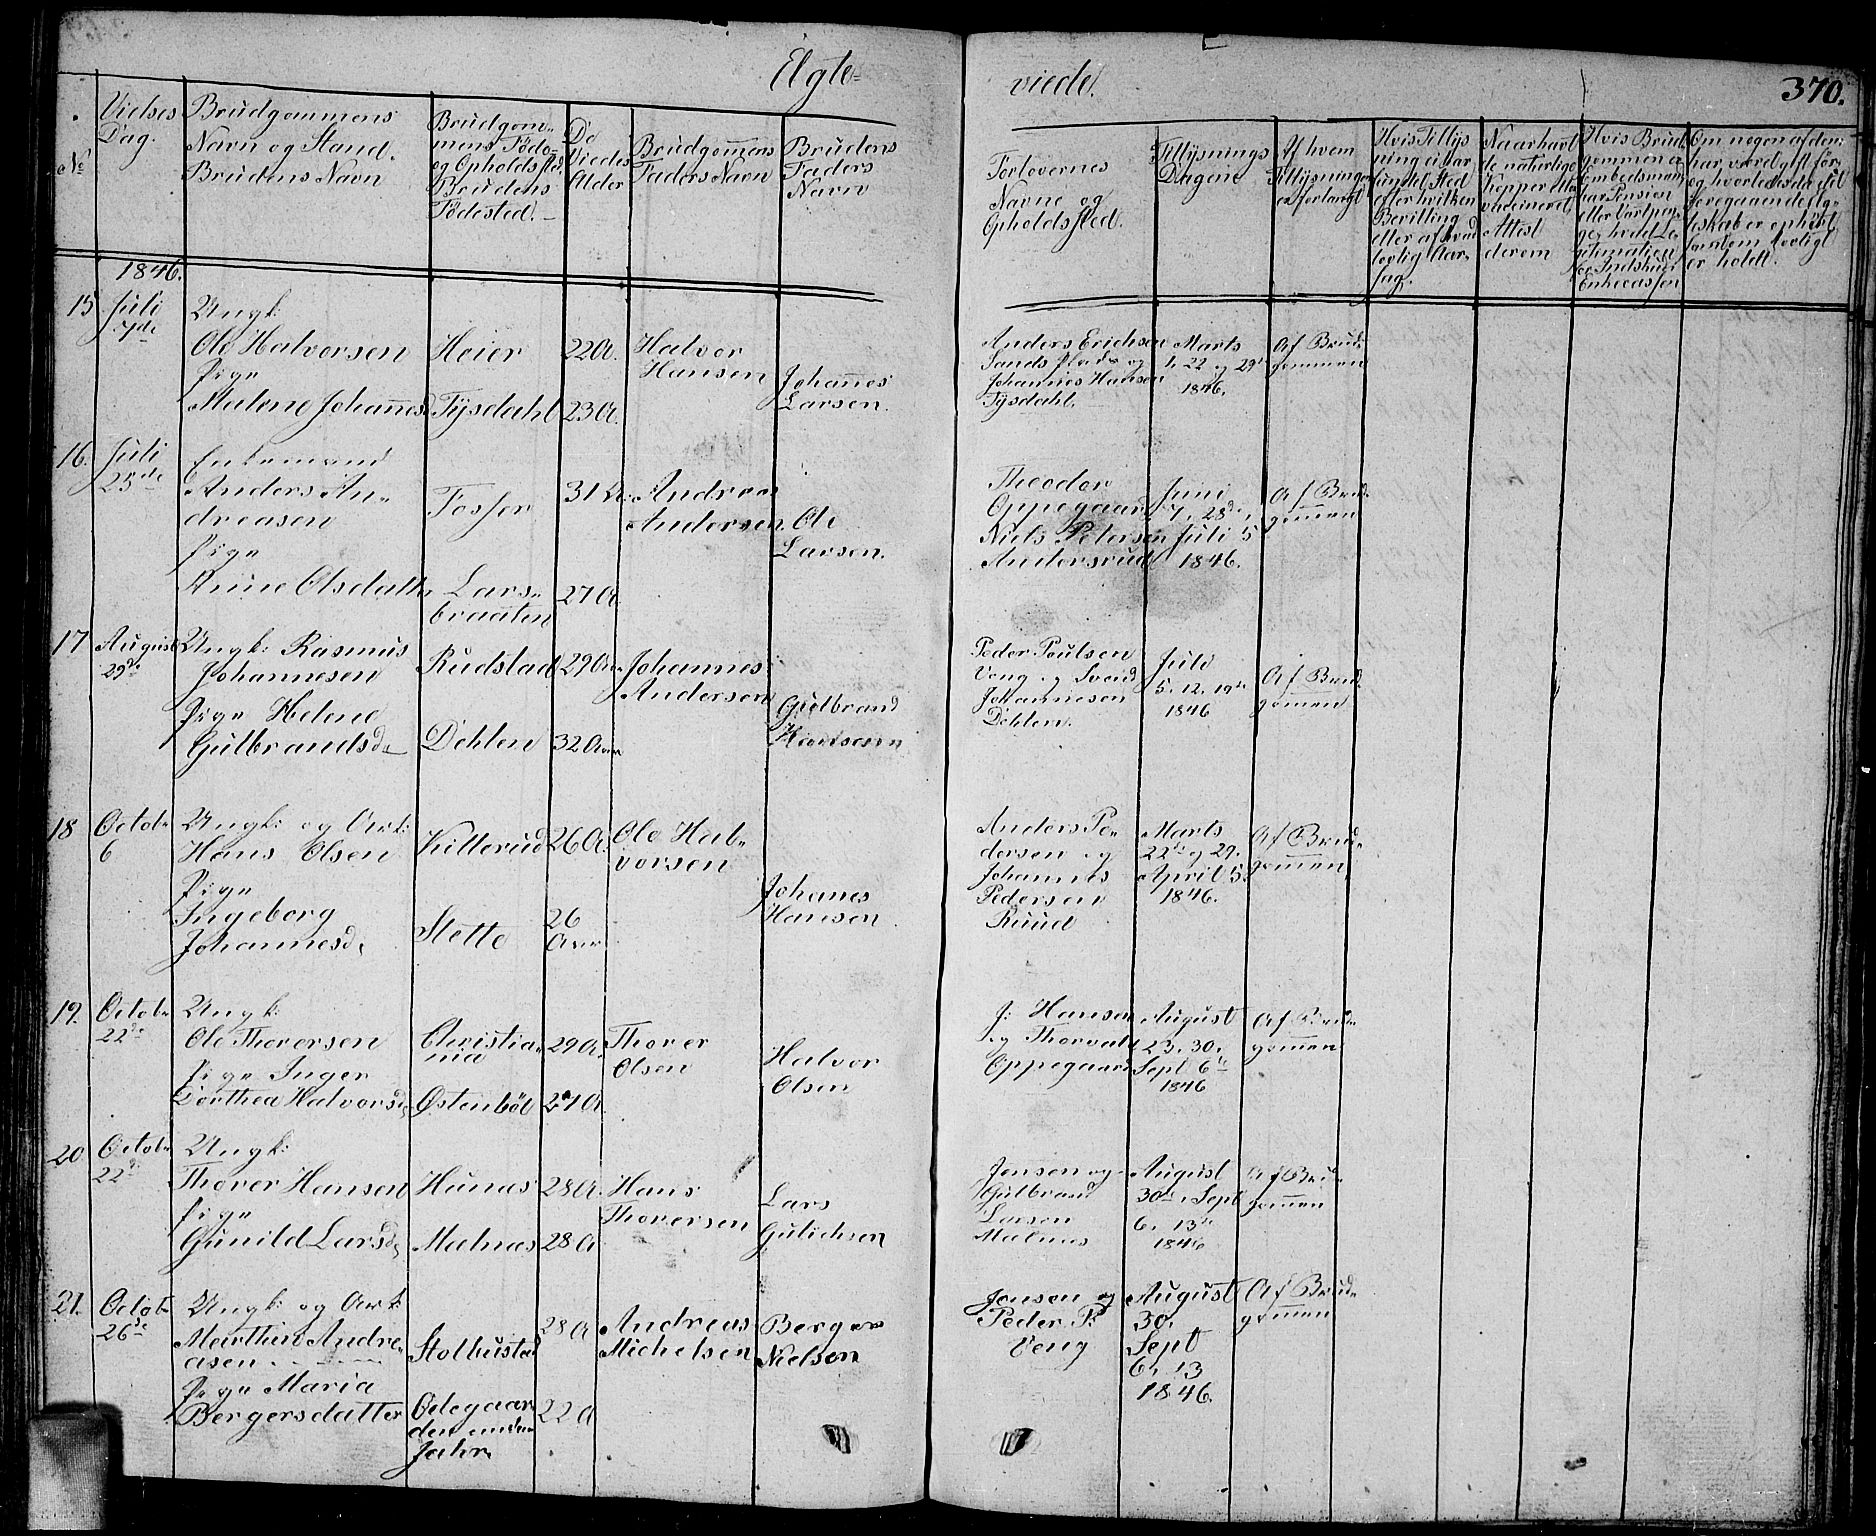 Elgte-
viede.
370.
No
Vielses
Dag.
Brudgommens
Navn og Stand.
Brudens Navn
Brudgom-
mens Føde-
og Opholdssted.
Brudens
Fødested.
De
Viedes
Alder
Brudgommens
Faders Navn
Brudens
Faders
Navn
Forlovernes
Navne og
Opholdssted.
Tillysnings
Dagene
Af hvem
Tillysningen
er forlangt
Hvis Tillys
ning ei har
fundet Sted
efter hvilken
Bevilling
eller af hvad
lovlig Aar
sag.
Naar havt
de naturlige
Kopper eller
vaccineret,
Attest
derom
Hvis Brud
gommen er
Embedsmand
har Pension
eller Vartpen
ge, hvad Le
gitimation
for Indskud i
Enkecassen
Om nogen af dem
har været gift før,
og hvorledes da det
foregaaende Æg-
teskab er ophørt,
samt om lovligt
er holdt.
1846.
15
Juli
7de
Ungk:
Ole Halvorsen
Pige
Malene Johannesd
Heier
Tysdahl
22 A.
23 A.
Halvor
Hansen
Johannes
Larsen.
Anders Erichsen
Sands Plads og
Johannes Hansen
Tysdahl.
Marts
22 og 29de
1846.
Af Brud-
gommen
16.
Juli
25de
Enkemand
Anders An-
dreasen
Pige
Anne Olsdatter
Fosser
Lars-
braaten
31 A.
27 A.
Andreas
Andersen
Ole
Larsen.
Theodor
Oppegaard
Niels Petersen
Andersrud
Juni
7. 28de
Juli 5
1846.
Af Brud-
gommen
17
August
29de
Ungk: Rasmus
Johannesen
Pige Helene
Gulbrandsd-
Rudstad
Dehlen
29 Aar
32 Aar
Johannes
Andersen
Gulbrand
Peder Poulsen
Veng og Svend
Johannesen
Dehlen.
Juli
5. 12. 19de
1846
Af Brud-
gommen
18
Octob-
6
Ungk: og Ark:
Hans Olsen
Pige
Ingeborg
Johannesd.
Kitterud
Slette
26 A.
26
Aar
Ole Hal-
vorsen
Johanes
Hansen
Anders Pe-
dersen og
Johannes
Pedersen
Ruud
Marts
22de og 29.
April 5
1846.
Af Brud-
gommen
19.
Octob-
22de
Ungk:
Ole Thorersen
Pige Inger
Dorthea Halvorsd.
Christia-
nia
Østenbøl
29 A.
27 A.
Thorer
Olsen
Halvor
Olsen
J: Hansen
og Thorvald
Oppegaard
August
23. 30.
Sept 6te
1846
Af Brud-
gommen
20
Octob-
22de
Ungk:
Thorer Hansen
Pige
Gunild Larsd.
Hunas
Malnas
28 A.
28 A
Hans
Thorersen
Lars
Gulichsen
Jensen og
Gulbrand
Larsen
Malnas
August
30de, Sept
6. 13de
1846
Af Brud-
gommen
21.
Octob-
26de
Ungk: og Ark:
Marthin Andre-
asen.
Pige Maria
Bergersdatter
Stolhustad
Odegaar
den
Jahr
28 A
22 A
Andreas
Michelsen
Berger
Nielsen
Jensen og
Peder P.
Veng
August
30.
Sept
6. 13
1846.
Af Brud-
gommen